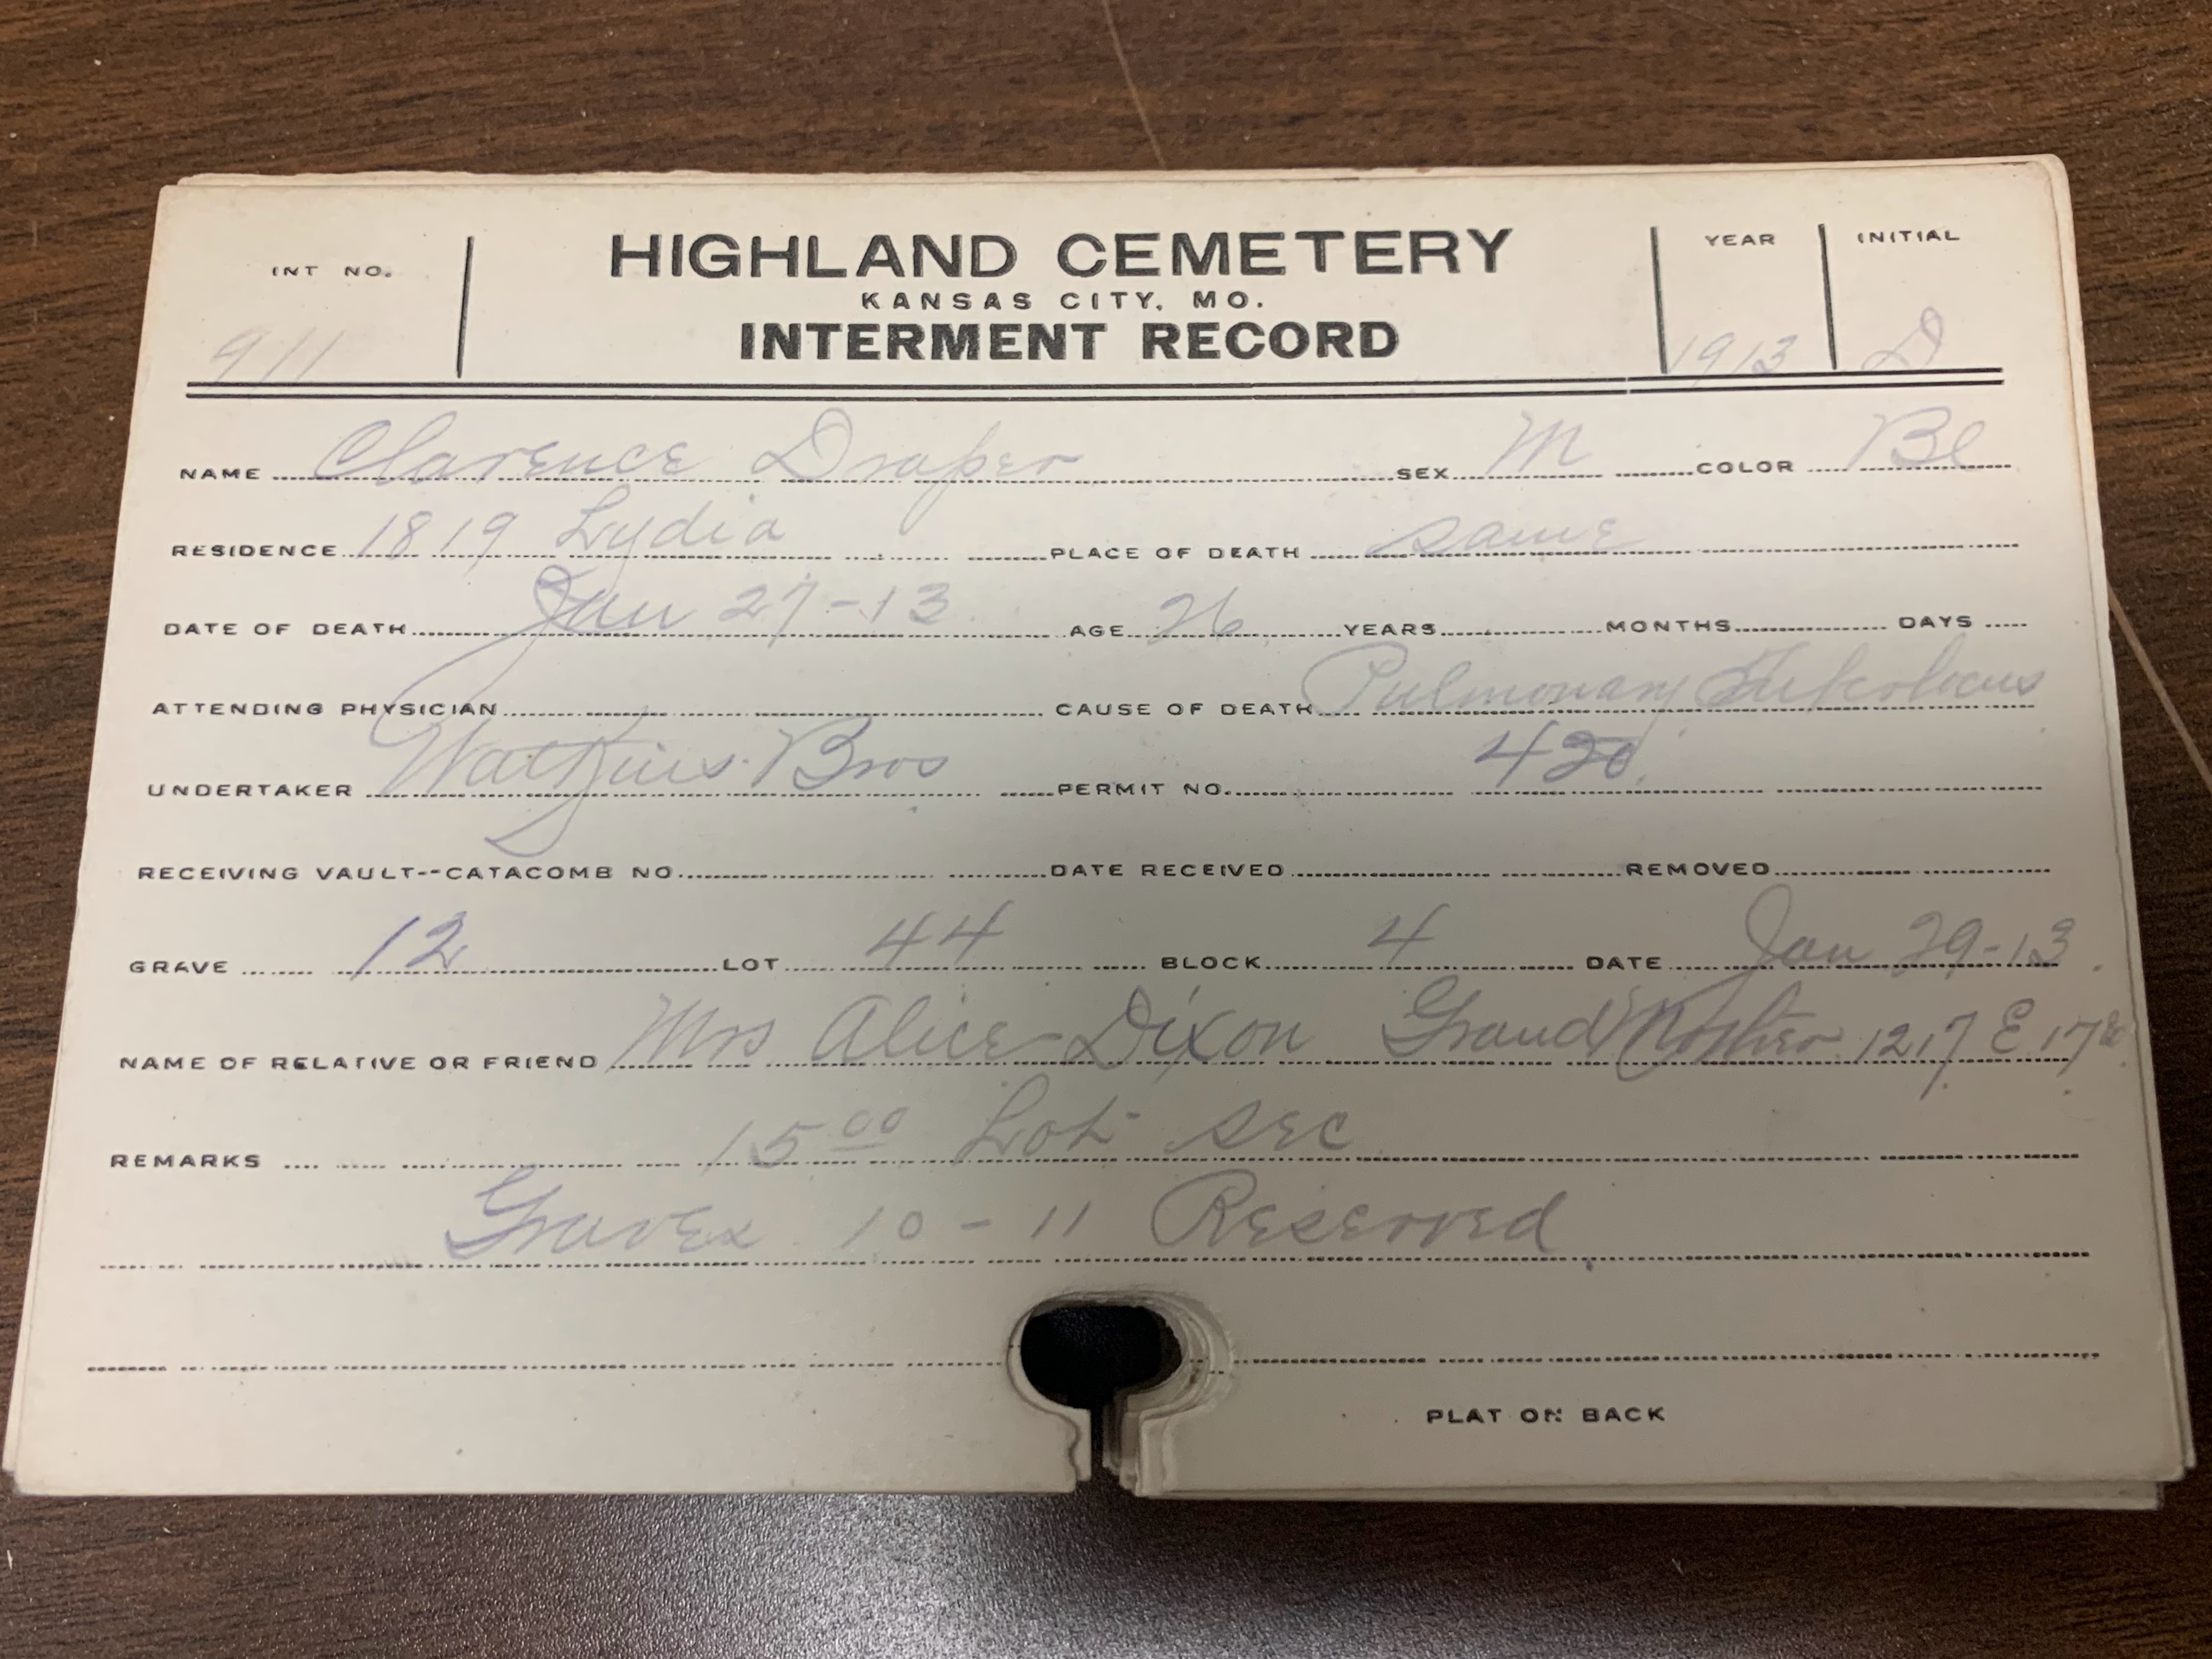 INT NO. HIGHLAND CEMETERY YEAR INITIAL
KANSAS CITY, MO.
911 INTERMENT RECORD 1913 D
NAME Clarence Draper SEX M COLOR Bl
RESIDENCE 1819 Lydia PLACE OF DEATH same
DATE OF DEATH Jan 27-13 AGE 26 YEARS MONTHS DAYS
ATTENDING PHYSICIAN CAUSE OF DEATH Pulmonary
UNDERTAKER Watkins Bros PERMIT NO.
RECEIVING VAULT--CATACOMB NO. DATE RECEIVED REMOVED
GRAVE 12 LOT 44 BLOCK 4 DATE Jan 29-13
NAME OF RELATIVE OR FRIEND Mrs Alice Dixon Grand Mother 1217 E 17
REMARKS 15 00 Lot sec
Graves 10-11 Reserved
PLAT ON BACK